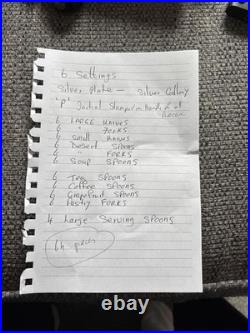 6 Settings
Silver Plate – Silver Gallery
"P" Initial Stamped on Handle of
6 LARGE KNIVES
6 " FORKS
6 Small KNIVES
6 Desert SPOONS
6 " FORKS
6 SOUP SPOONS
6 Tea SPOONS
6 Coffee SPOONS
6 Grapefruit SPOONS
6 Pastry FORKS
4 Large Serving SPOONS
64 pieces